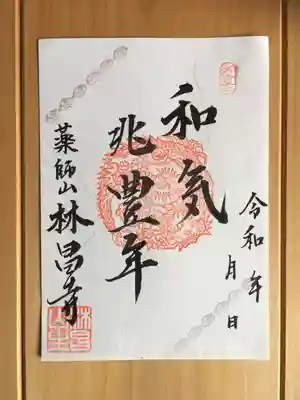 令和 年
月 日
和気
兆豊年
薬師山 林昌寺